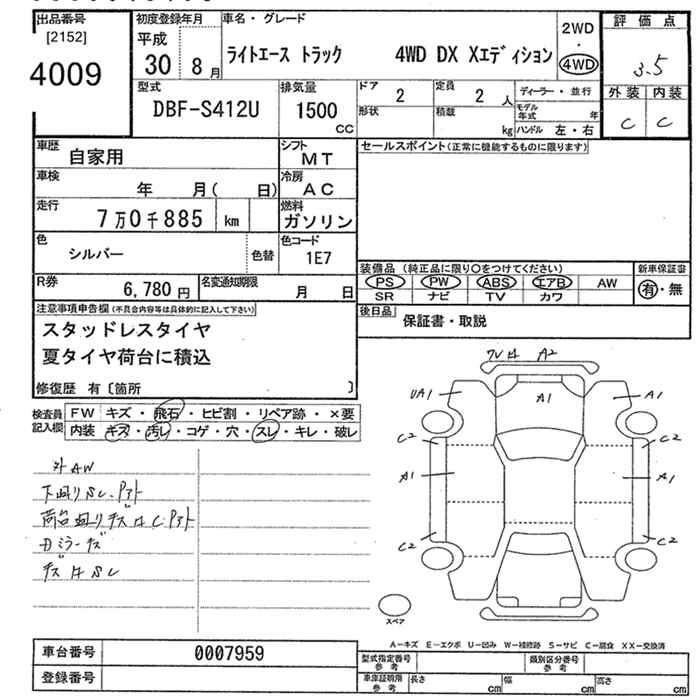 出品番号
[2152]
4009
初度登録年月
平成
30 8月
車名・グレード
ライトエース トラック 4WD DX Xエディション
2WD
・
4WD
評価点
3.5
外装 内装
C C
型式
DBF-S412U
排気量
1500
CC
ドア
2
定員
2 人
ディーラー・並行
形状
積載
kg
モデル年式 年
ハンドル 左・右
車歴
自家用
シフト
MT
車検
年 月( 日)
冷房
AC
走行
7万0千885 km
燃料
ガソリン
色
シルバー
色替
色コード
1E7
R券
6,780円
名変通知期限
月 日
セールスポイント(正常に機能するものに限ります)
装備品 (純正品に限り〇をつけてください)
PS PW ABS エアB AW
SR ナビ TV カワ
新車保証書
有・無
後日品
保証書・取説
注意事項申告欄(不具合内容等は具体的に記入して下さい)
スタッドレスタイヤ
夏タイヤ荷台に積込
修復歴 有〔箇所 〕
検査員記入欄
FW キズ・飛石・ヒビ割・リペア跡・×要
内装 キズ・汚レ・コゲ・穴・スレ・キレ・破レ
外AW
下廻りSC.Pアト
荷台廻りキズ凹C.Pアト
Rミラーキズ
キズ凹SC
ワレ凹 A2
UA1 A1 A1
C2 C2
A1 A1
C2 C2
スペア
A-キズ E-エクボ U-凹み W-補修跡 S-サビ C-腐食 XX-交換済
車台番号 0007959
登録番号
型式指定番号
参考
類別区分番号
参考
車庫証明用
参考
長さ cm 幅 cm 高さ cm